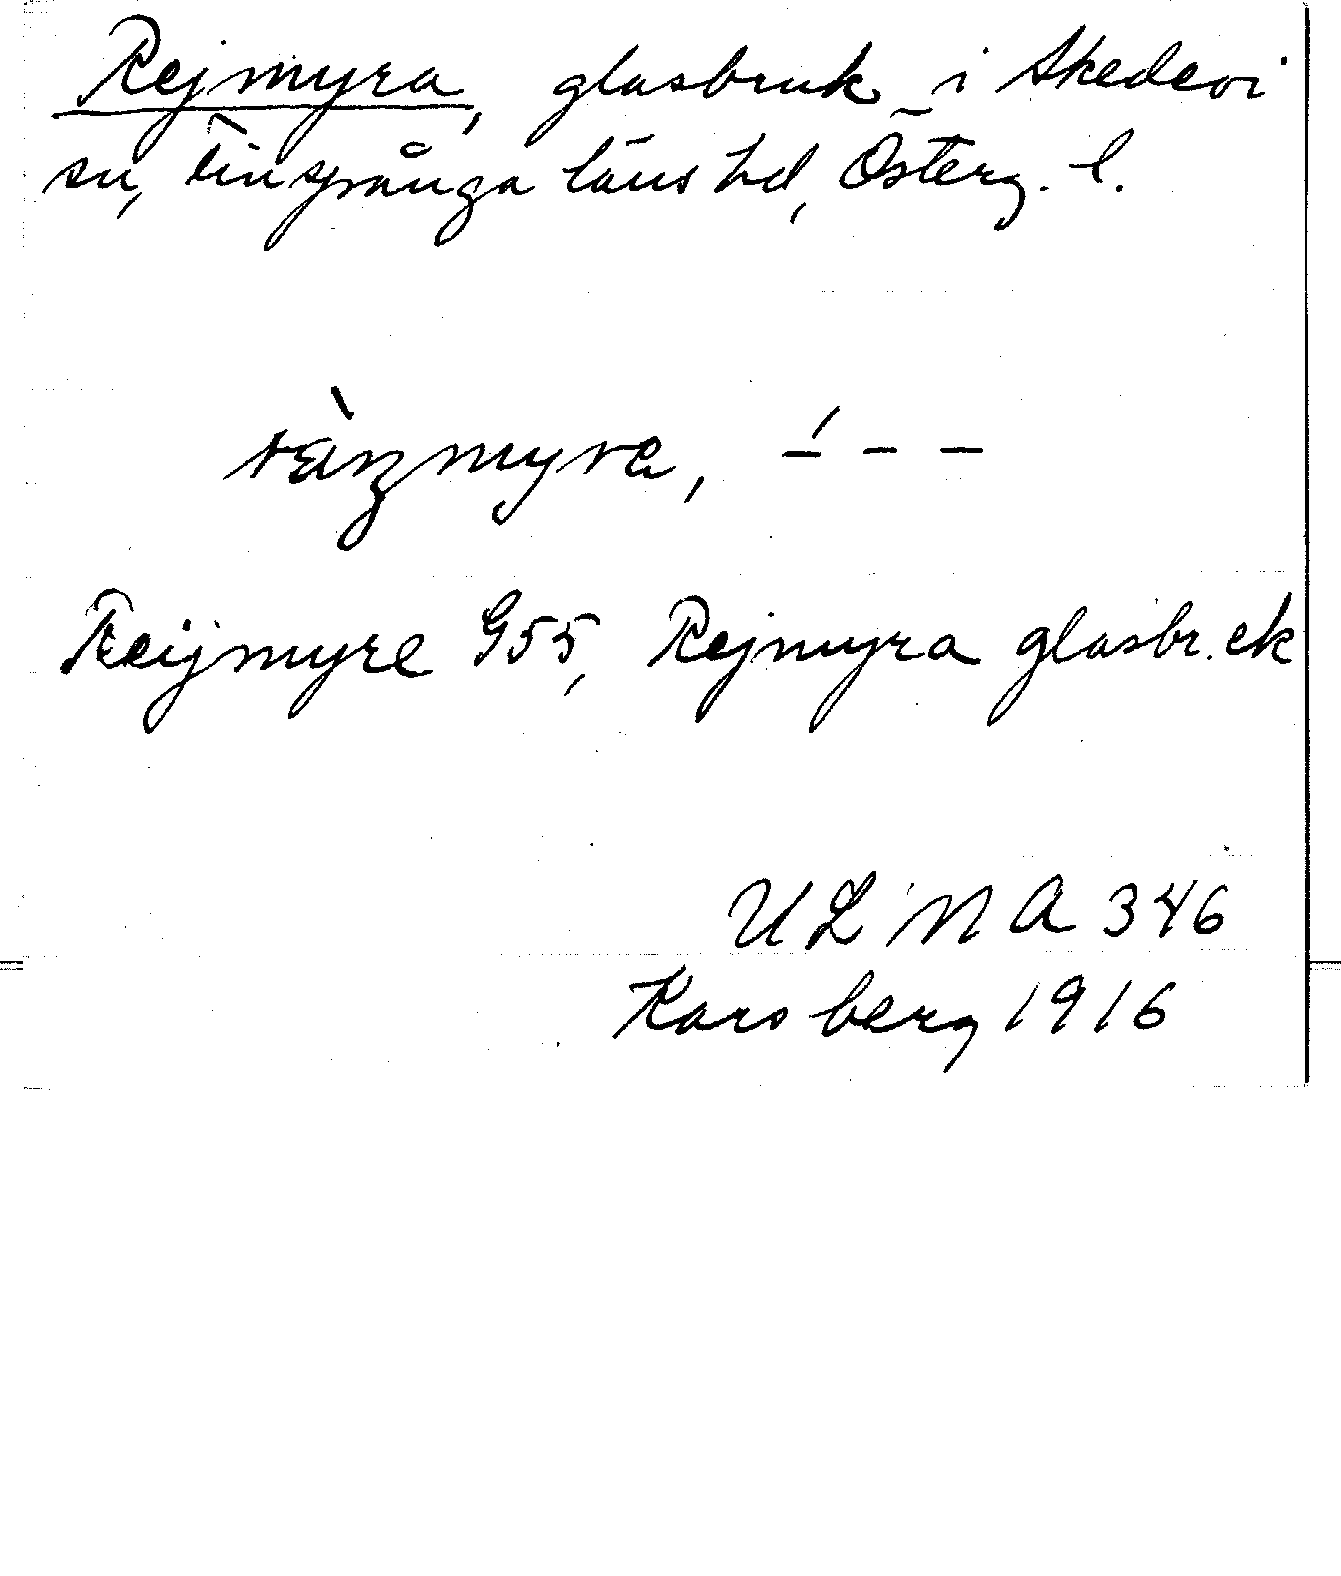 Rejmyra, glasbruk i Skedevi
sn, Finspånga läns hd, Österg. l.
ràn̡myra, –́ – –
Reijmyre G55, Rejmyra glasbr. ek
ULMA 346
Karsberg 1916